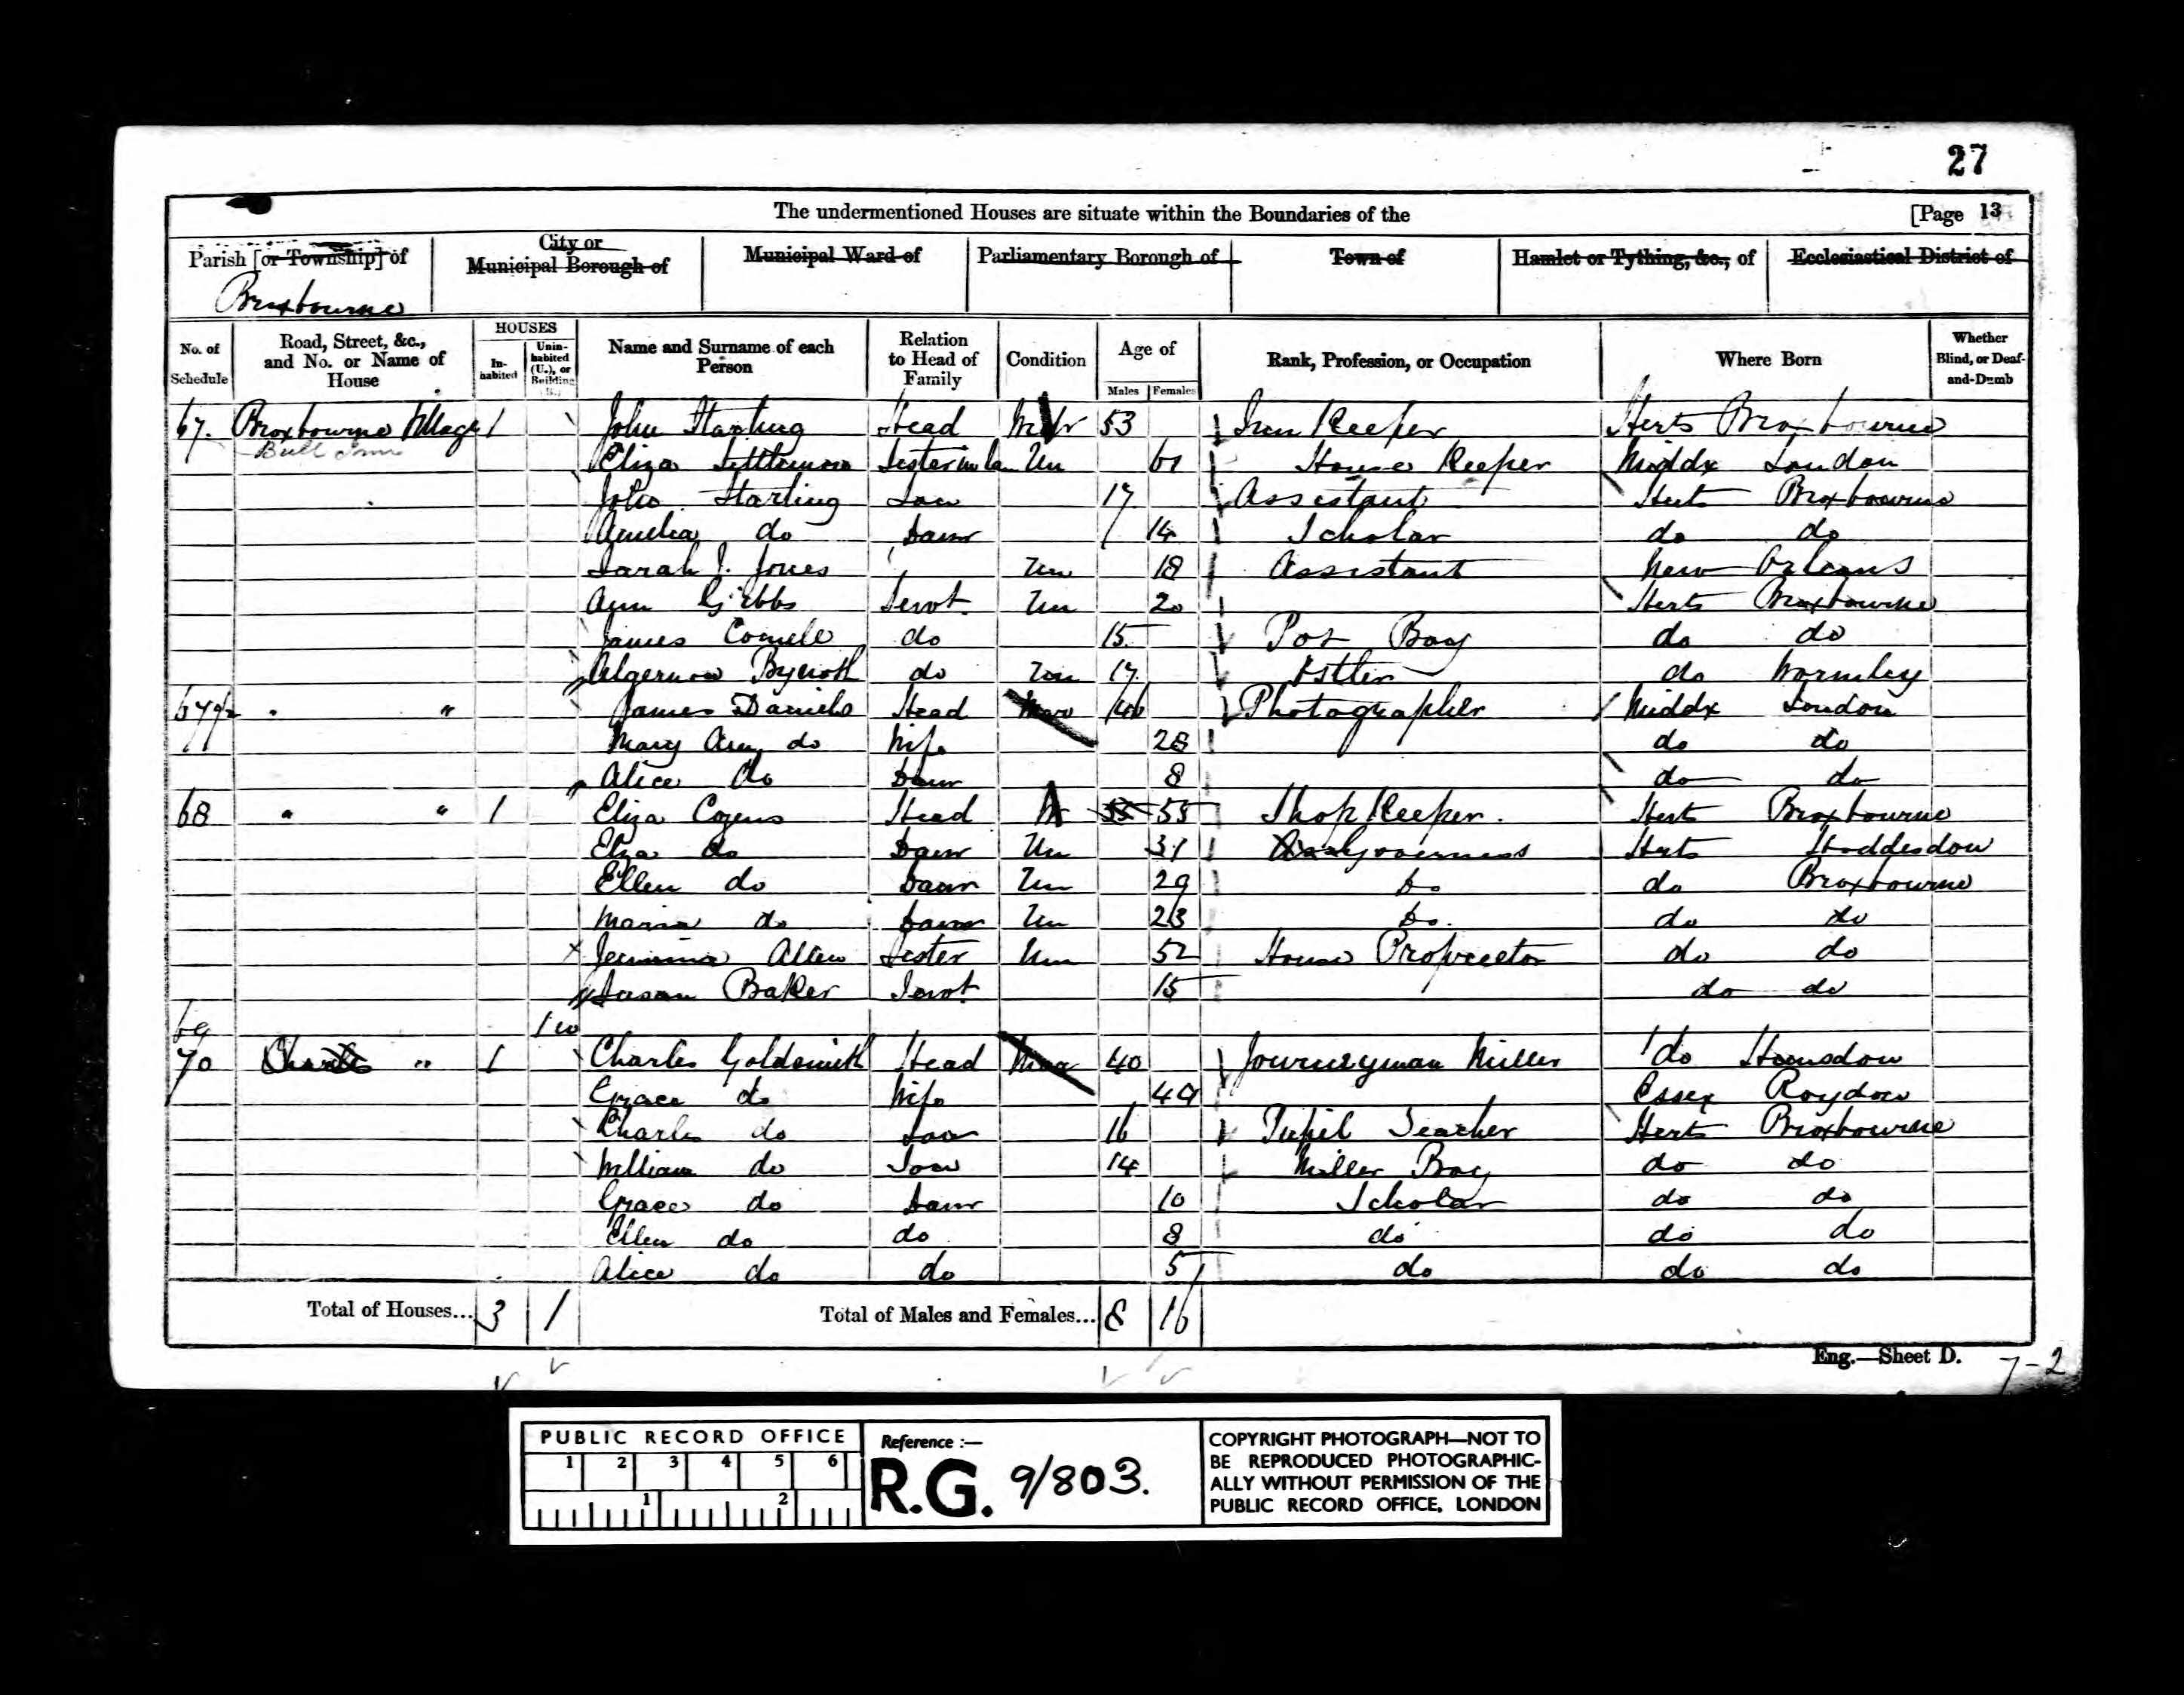 27
The undermentioned Houses are situate within the Boundaries of the [Page 13
Parish [or Township] of City or Municipal Borough of Municipal Ward of Parliamentary Borough of Town of Hamlet or Tything, &c., of Ecclesiastical District of
Broxbourne
No. of Schedule Road, Street, &c., and No. or Name of House HOUSES Inhabited Uninhabited (U.), or Building (B.) Name and Surname of each Person Relation to Head of Family Condition Age of Males Females Rank, Profession, or Occupation Where Born Whether Blind, or Deaf-and-Dumb
67. Broxbourne Village 1 John Starling Head 53 Inn Keeper Herts Broxbourne
Bull Inn Eliza Sister in la Un House Keeper Middx London
John Starling Son 17 Assistant Herts Broxbourne
Amelia do Daur 14 Scholar do do
Sarah J. Jones Un 18 Assistant New Orleans
Ann Gibbs Servt Un 20 Herts Broxbourne
James do 15 Pot Boy do do
Algernon do Un 17 Ostler do Wormley
67 1/2 " " James Daniels Head Mar 46 Photographer Middx London
Mary Ann do Wife 28 do do
Alice do Daur 8 do do
68 " " 1 Eliza Cozens Head W 55 Shop Keeper. Herts Broxbourne
Eliza do Daur Un 31 Governess Herts Hoddesdon
Ellen do Daur Un 29 Do do Broxbourne
Maria do Daur Un 23 Do. do do
Jemima Allen Sister Un 52 House Proprietor do do
Susan Baker Servt 15 do do
69 1 u
70 Charles " 1 Charles Goldsmith Head Mar 40 Journeyman Miller do Hunsdon
Grace do Wife 49 Essex Roydon
Charles do Son 16 Pupil Teacher Herts Broxbourne
William do Son 14 Miller Boy do do
Grace do Daur 10 Scholar do do
Ellen do do 8 do do do
Alice do do 5 do do do
Total of Houses... 3 1 Total of Males and Females... 8 16
Eng.—Sheet D. 7-2
PUBLIC RECORD OFFICE
1 2 3 4 5 6
1 2
Reference :—
R.G. 9/803.
COPYRIGHT PHOTOGRAPH—NOT TO
BE REPRODUCED PHOTOGRAPHIC-
ALLY WITHOUT PERMISSION OF THE
PUBLIC RECORD OFFICE, LONDON